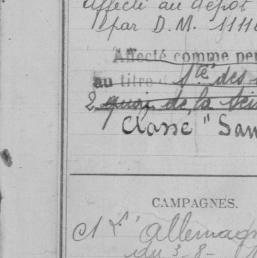 Affecté au dépôt
par D.M. 1111
Affecté comme per
au titre des
2 quai de la Sei
Classé "San
CAMPAGNES.
C1 L'allemag
du 3-8-